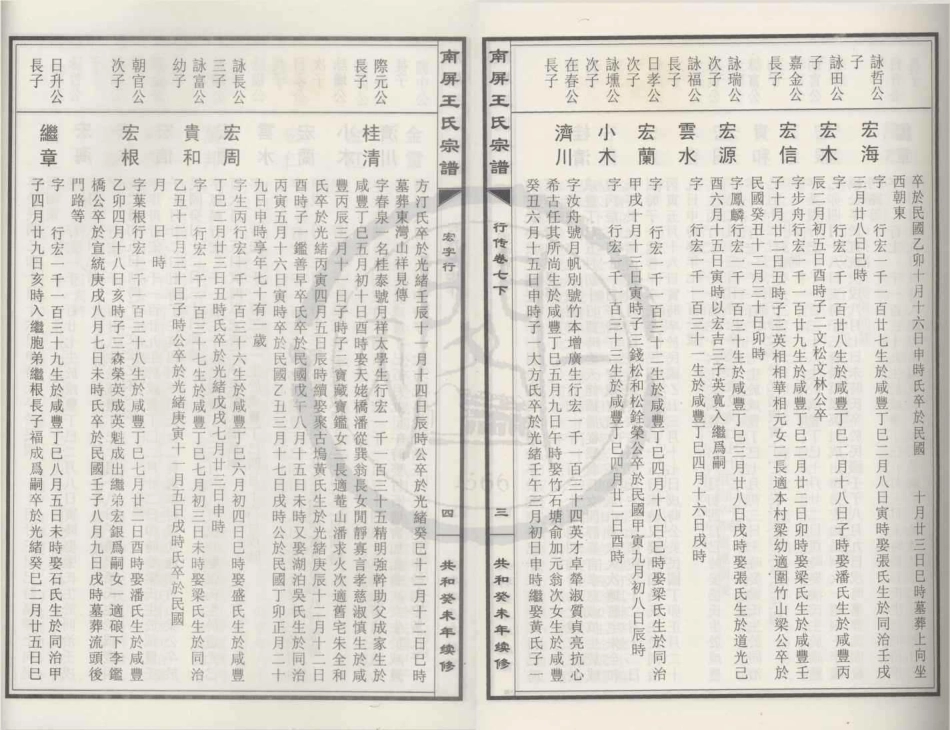 卒於民國乙卯十月十六日申時氏卒於民國　十月廿三日巳時墓葬上向坐
西朝東
詠哲公
子
宏海
字　行宏一千一百廿七生於咸豐丁巳二月八日寅時娶張氏生於同治壬戌
三月廿八日巳時
詠田公
子
宏木
字　行宏一千一百廿八生於咸豐丁巳二月十八日子時娶潘氏生於咸豐丙
辰二月初五日酉時子二文松文林公卒
嘉金公
長子
宏信
字步舟行宏一千一百廿九生於咸豐丁巳二月廿二日卯時娶梁氏生於咸豐壬
子十月廿二日丑時子三英相華相元女二長適本村梁幼適圍竹山梁公卒於
民國癸丑十二月三十日卯時
詠瑞公
次子
宏源
字鳳麟行宏一千一百三十生於咸豐丁巳三月廿八日戌時娶張氏生於道光己
酉六月十五日寅時以宏吉三子英寬入繼爲嗣
詠福公
長子
雲水
字　行宏一千一百三十一生於咸豐丁巳四月十六日戌時
日孝公
次子
宏蘭
字　行宏一千一百三十二生於咸豐丁巳四月十八日巳時娶梁氏生於同治
甲戌十月十三日寅時子三錢松和松銓榮公卒於民國甲寅九月初八日辰時
詠壎公
次子
小木
字　行宏一千一百三十三生於咸豐丁巳四月廿二日酉時
在春公
長子
濟川
字汝舟號月帆別號竹本增廣生行宏一千一百三十四英才卓犖淑質貞亮抗心
希古任其所尚生於咸豐丁巳五月九日午時娶竹石塘俞加元翁次女生於咸豐
癸丑六月十五日申時子一大方氏卒於光緒壬午三月初日申時繼娶黃氏子一
南屏王氏宗譜
行传卷七下
三
共和癸未年续修
南屏王氏宗譜
宏字行
四
共和癸未年续修
方汀氏卒於光緒壬辰十一月十四日辰時公卒於光緒癸巳十二月十二日巳時
墓葬東灣山祥見傳
際元公
長子
桂清
字春泉一名桂泰號月祥太學生行宏一千一百三十五精明強幹助父成家生於
咸豐丁巳五月初十日酉時娶天姥橋潘從巽翁長女閒靜寡言孝慈淑慎生於咸
豐丙辰三月十一日子時子二寶藏寶鑑女二長適菴山潘求火次適舊宅朱全和
氏卒於光緒丙寅四月五日辰時續娶聚古塢黃氏生於光緒庚辰十二月十二日
酉時子一鑑善早卒氏卒於民國戊午八月十五日未時又娶湖泊吳氏生於同治
丙寅五月十六日寅時卒於民國乙丑三月十七日戌時公於民國丁卯正月二十
九日申時享年七十有一歲
詠長公
三子
宏周
字生丙行宏一千一百三十六生於咸豐丁巳六月初四日巳時娶盛氏生於咸豐
丁巳二月廿三日丑時氏卒於光緒戊戌七月廿三日申時
詠富公
幼子
貴和
字　行宏一千一百三十七生於咸豐丁巳七月初三日未時娶梁氏生於同治
乙丑十二月三十日子時公卒於光緒庚寅十一月五日戌時氏卒於民國
月　日　時
朝官公
次子
宏根
字葉根行宏一千一百三十八生於咸豐丁巳七月廿二日酉時娶潘氏生於咸豐
乙卯四月十八日亥時子三森榮英成英魁成出繼弟宏銀爲嗣女一適硠下李鑑
橋公卒於宣統庚戌八月七日未時氏卒於民國壬子八月九日戌時墓葬流頭後
門路等
日升公
長子
繼章
字　行宏一千一百三十九生於咸豐丁巳八月五日未時娶石氏生於同治甲
子四月廿九日亥時入繼胞弟繼根長子福成爲嗣卒於光緒癸巳二月廿五日巳